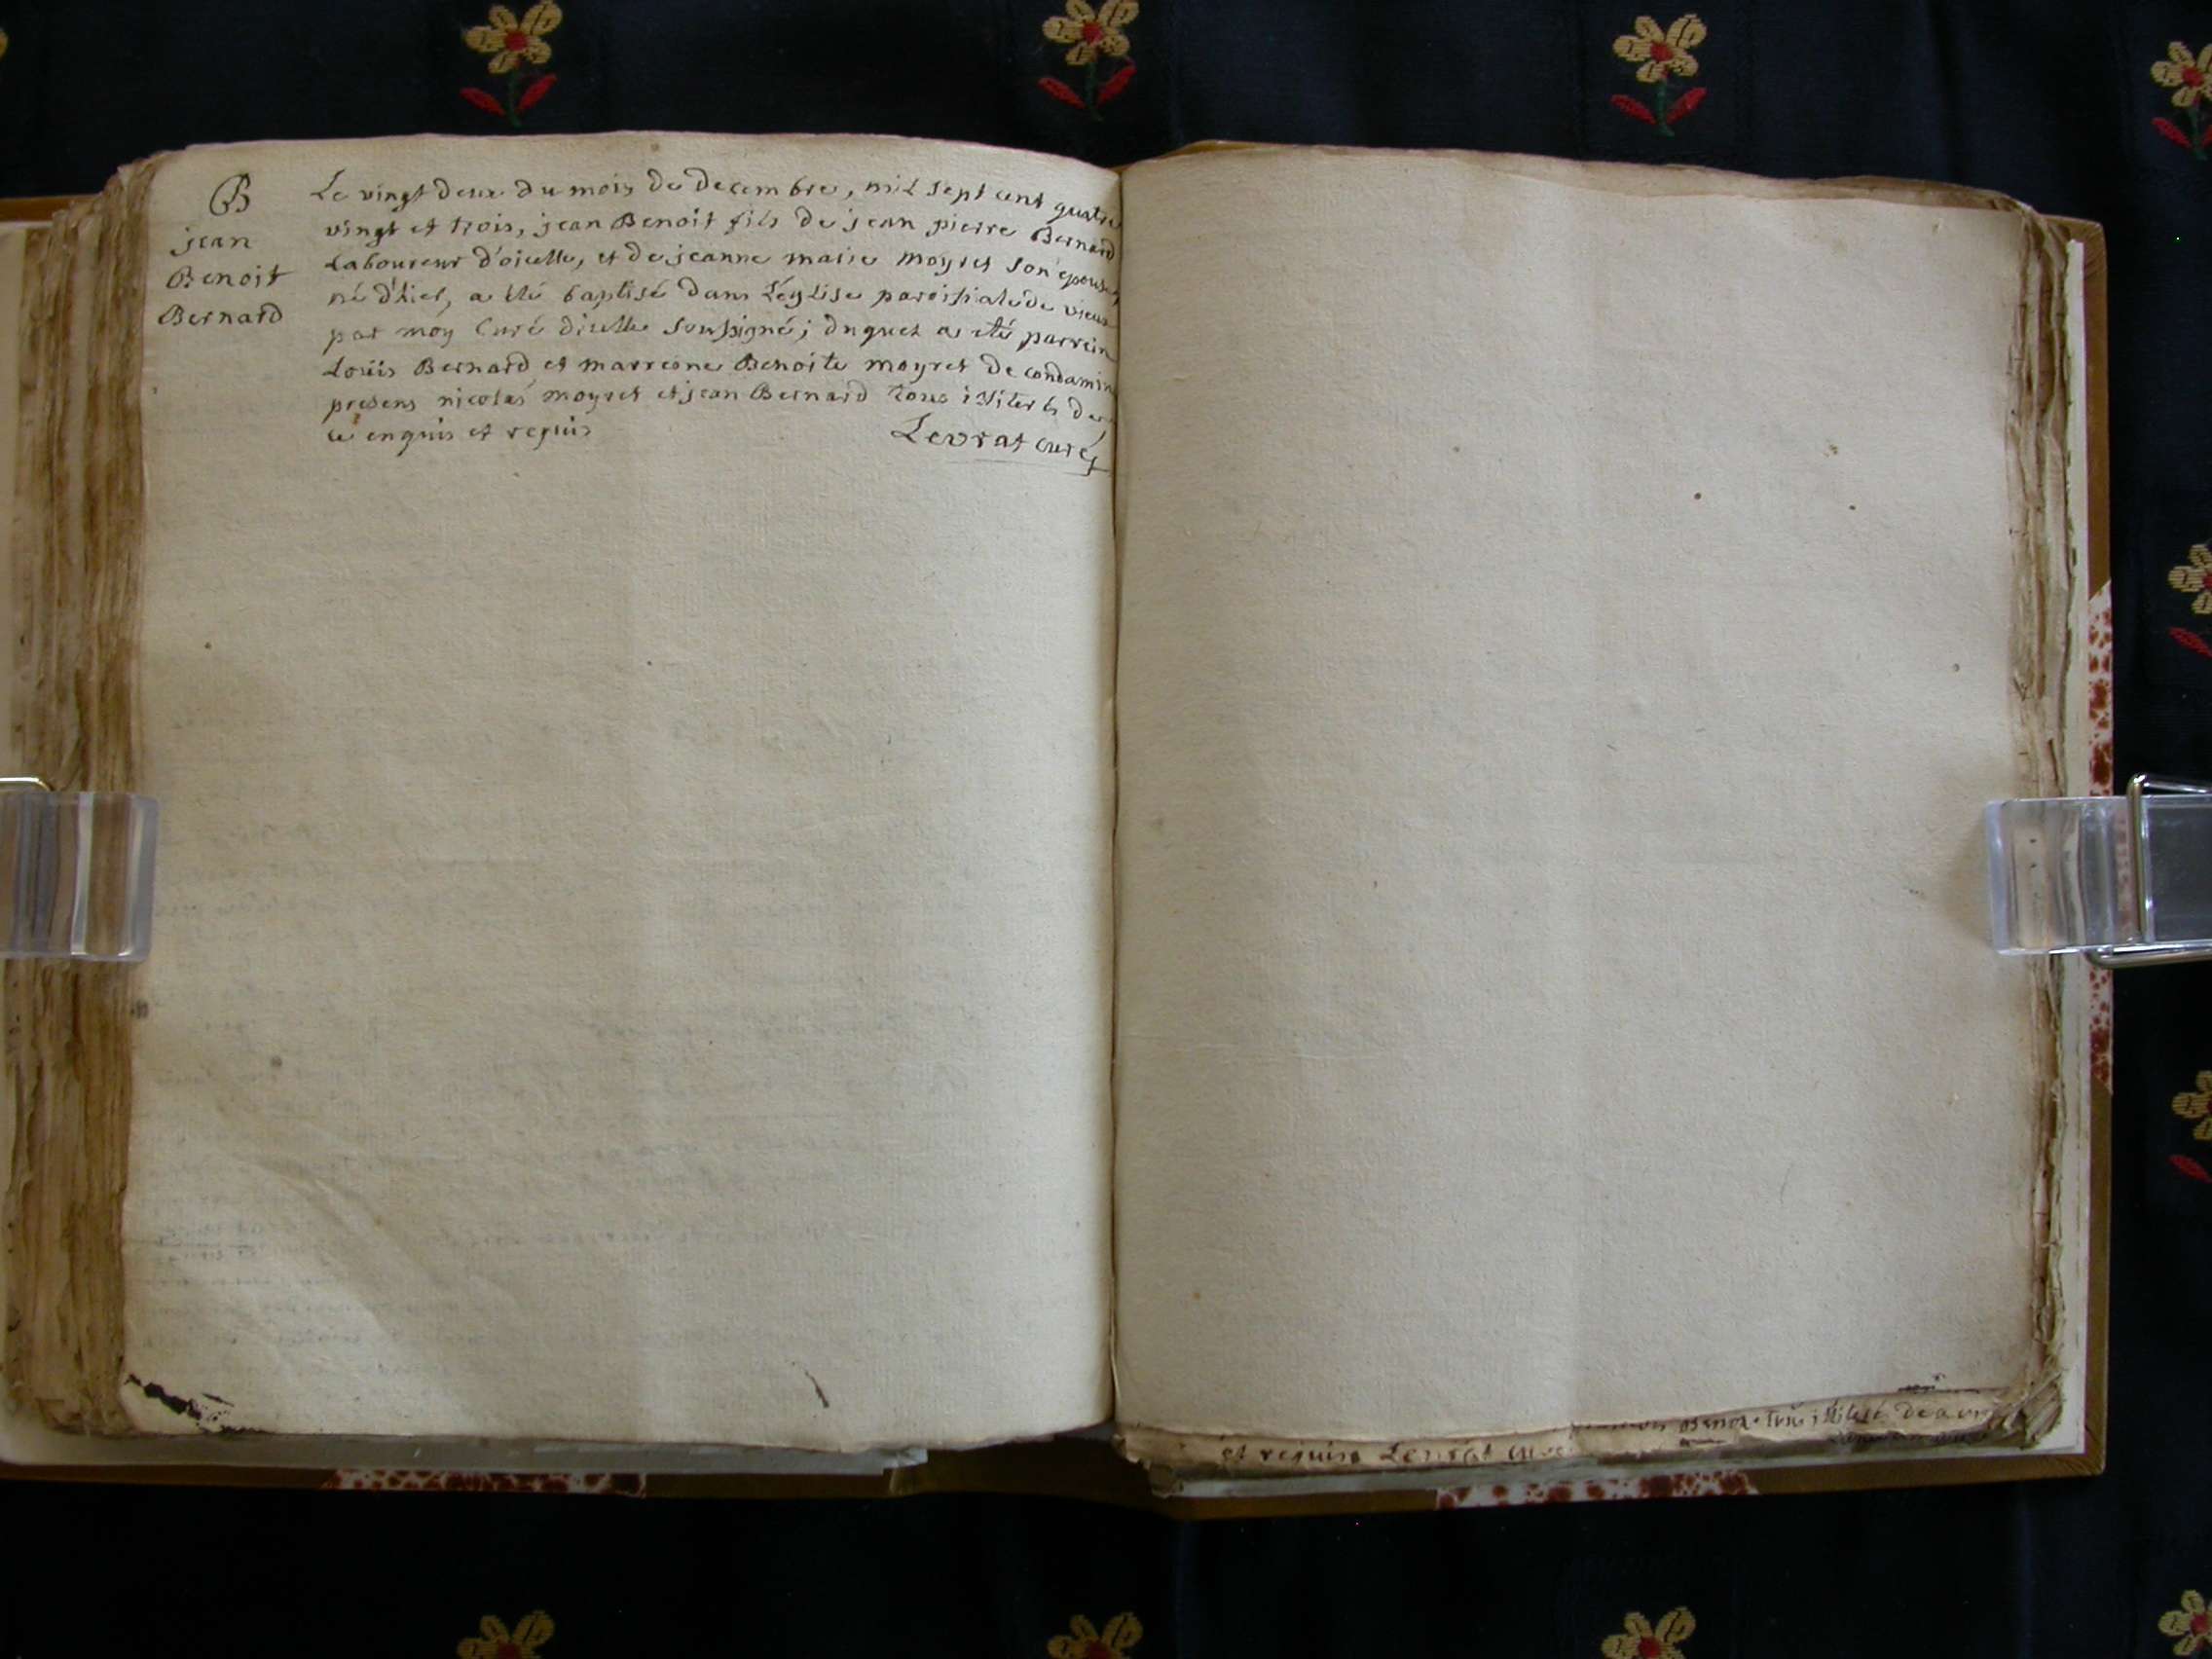 B
jean
Benoit
Bernard
Le vingt deux du mois de decembre, mil sept cent quatre
vingt et trois, jean Benoit fils de jean pierre Bernard
Laboureur d'oicelle, et de jeanne marie moyret son epouse
né d'hier, a été baptisé dans Léglise paroissiale de vieu
par moy Curé dicelle soussigné; duquel a eté parrein
Louis Bernard et marreine Benoite moyret de condamin
presens nicolas moyret et jean Bernard tous illiterés de
ce enquis et requis
Levrat curé
illiteré de
et requis Levrat curé